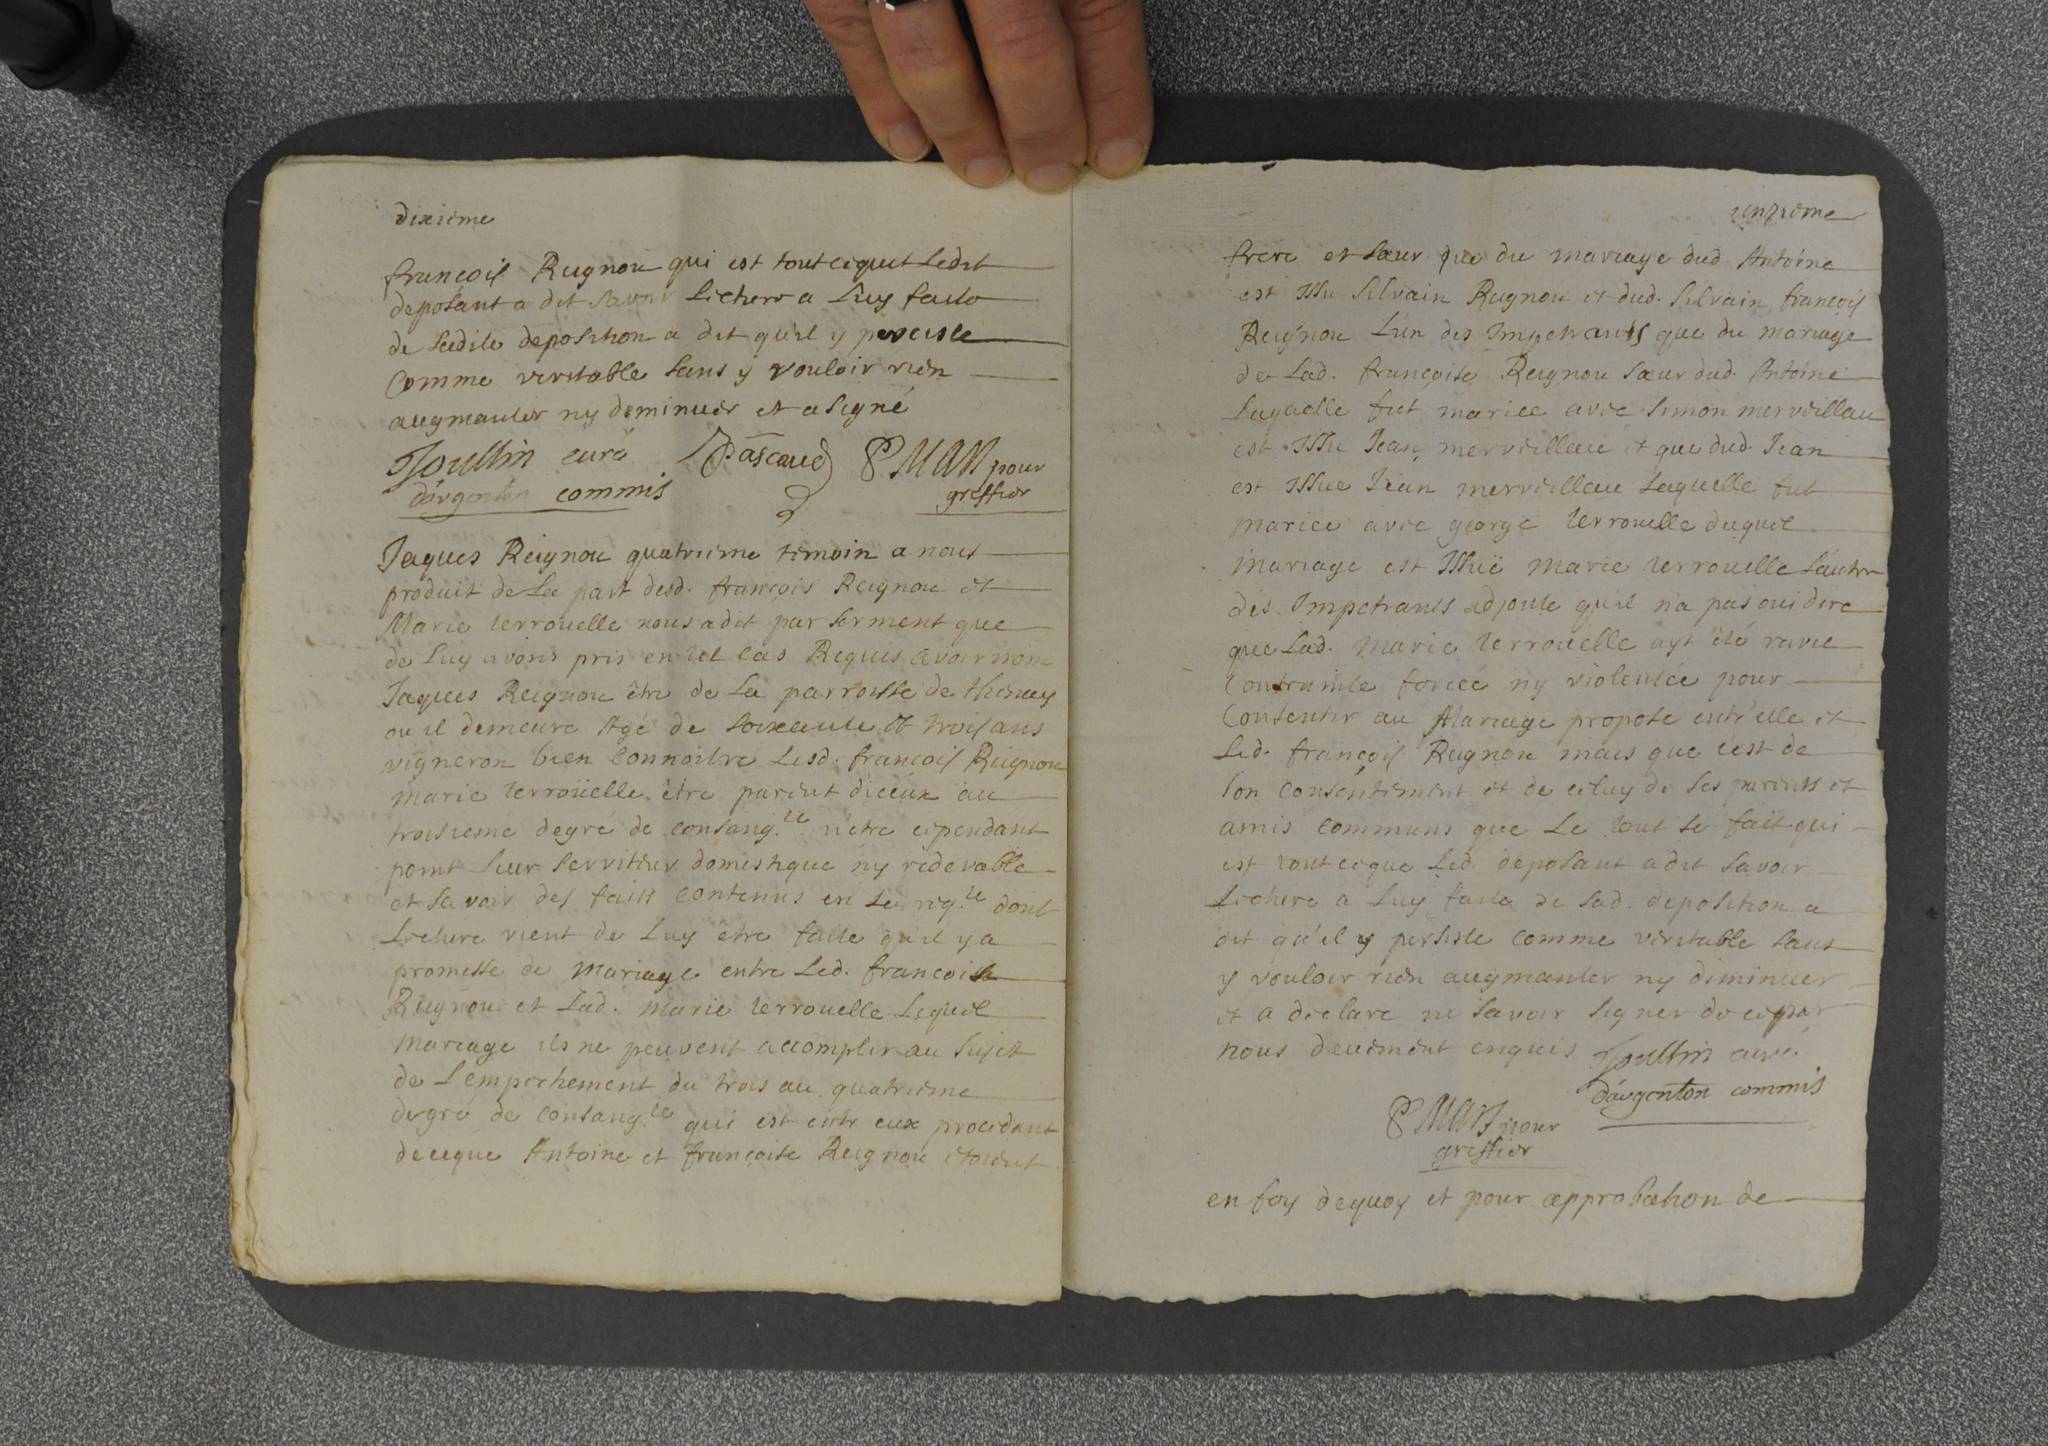 dixieme
francois Reignou qui est tout ceque Ledit
deposant a dit savoir Lecture a Luy faite
de Sadite deposition a dit qu'il y perciste
Comme veritable sans y vouloir rien
augmanter ny diminuer et a signé
Joullin curé Pascaud PMars pour
d'argenton commis greffier
Jaques Reignou quatrieme temoin a nous
produit de La part desd. françois Reignou et
Marie Verrouelle nous a dit par serment que
de Luy avons pris en tel cas Requis avoir nom
Jaques Reignou être de La parroisse de thenay
ou il demeure Agé de soixante et trois ans
vigneron bien Connoitre Lesd. francois Reignou
marie Verroüelle être parent diceux au
troisieme degré de consang.té n'etre cependant
point Leur serviteur domestique ny redevable
et savoir des faits contenus en La req.te dont
Lecture vient de Luy être faite qu'il y a
promesse de mariage entre Led. francois
Reignou et Lad. marie Verrouelle Lequel
mariage ils ne peuvent accomplir au sujet
de L'empechement du trois au quatrieme
degré de consang.té qui est entr eux procedant
de ceque Antoine et françoise Reignou étoient
unzieme
frere et sœur que du mariage dud Antoine
est Issu silvain Reignou et dud. silvain françois
Reignou L'un des Impetrants que du mariage
de Lad. françoise Reignou sœur dud. Antoine
Laquelle fut mariee avec simon merveillau
est Issu Jean merveillau et que dud Jean
est Issue Jean merveillau Laquelle fut
mariee avec george Verrouelle duquel
mariage est Issuë marie Verrouelle L'autre
des Impetrants adjoute qu'il n'a pas oui dire
que Lad. marie Verrouelle ayt été ravie
Contrainte forcée ny violentée pour
Consentir au Mariage proposé entr'elle et
Led. françois Reignou mais que c'est de
son consentement et de celuy de ses parents et
amis communs que Le tout se fait qui
est tout ceque Led. deposant a dit savoir
Lecture a Luy faite de sad. deposition a
dit qu'il y persiste comme veritable sans
y vouloir rien augmanter ny diminuer
et a declaré ne savoir signer de ce par
nous deuement enquis Joullin curé
d'argenton commis
PMars pour
greffier
en foy dequoy et pour approbation de